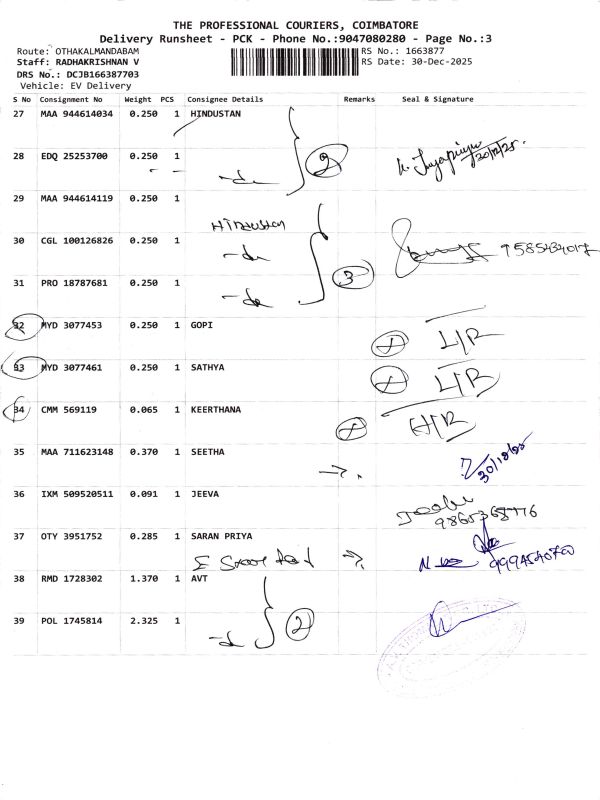 THE PROFESSIONAL COURIERS, COIMBATORE
Delivery Runsheet - PCK - Phone No.:9047080280 - Page No.:3
Route: OTHAKALMANDABAM
RS No.: 1663877
Staff: RADHAKRISHNAN V
RS Date: 30-Dec-2025
DRS No.: DCJB166387703
Vehicle: EV Delivery
S No Consignment No Weight PCS Consignee Details Remarks Seal & Signature
27 MAA 944614034 0.250 1 HINDUSTAN
28 EDQ 25253700 0.250 1
-do 2 30/12/25
29 MAA 944614119 0.250 1
HINDUSTAN
30 CGL 100126826 0.250 1
-do
31 PRO 18787681 0.250 1
-do 3
32 MYD 3077453 0.250 1 GOPI
L/R
33 MYD 3077461 0.250 1 SATHYA
L/R
34 CMM 569119 0.065 1 KEERTHANA
35 MAA 711623148 0.370 1 SEETHA
30/12/25
36 IXM 509520511 0.091 1 JEEVA
37 OTY 3951752 0.285 1 SARAN PRIYA
38 RMD 1728302 1.370 1 AVT
39 POL 1745814 2.325 1
-do 2